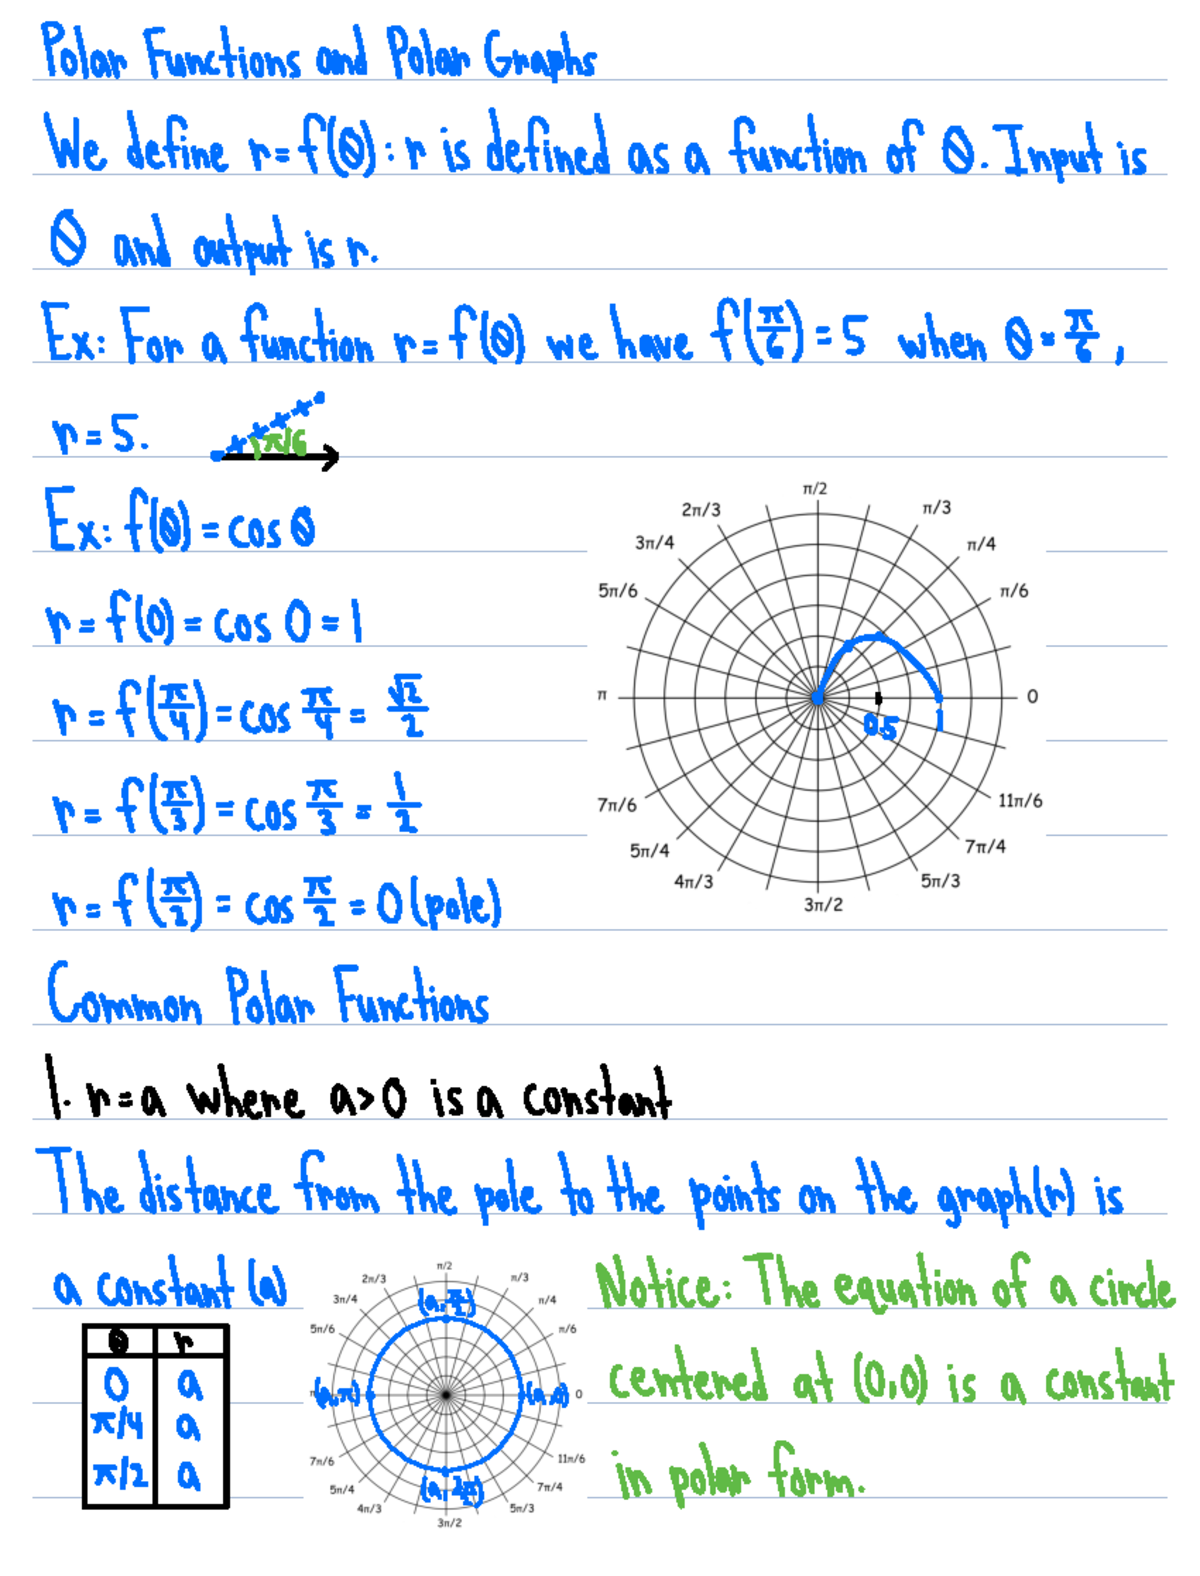 Polar Functions and Polar Graphs
We define r=f(θ): r is defined as a function of θ. Input is
θ and output is r.
Ex: For a function r=f(θ) we have f(π/6)=5 when θ=π/6,
r=5.
π/6
Ex: f(θ)=cos θ
r=f(0)=cos 0=1
r=f(π/4)=cos π/4=√2/2
r=f(π/3)=cos π/3=1/2
r=f(π/2)=cos π/2=0(pole)
π/2
2π/3
π/3
3π/4
π/4
5π/6
π/6
π
0
0.5
1
7π/6
11π/6
5π/4
7π/4
4π/3
5π/3
3π/2
Common Polar Functions
1. r=a where a>0 is a constant
The distance from the pole to the points on the graph(r) is
a constant (a)
θ r
0 a
π/4 a
π/2 a
π/2
2π/3
π/3
3π/4
(a, π/2)
π/4
5π/6
π/6
π
(a, π)
(a, 0)
0
7π/6
11π/6
5π/4
(a, 3π/2)
7π/4
4π/3
5π/3
3π/2
Notice: The equation of a circle
centered at (0,0) is a constant
in polar form.